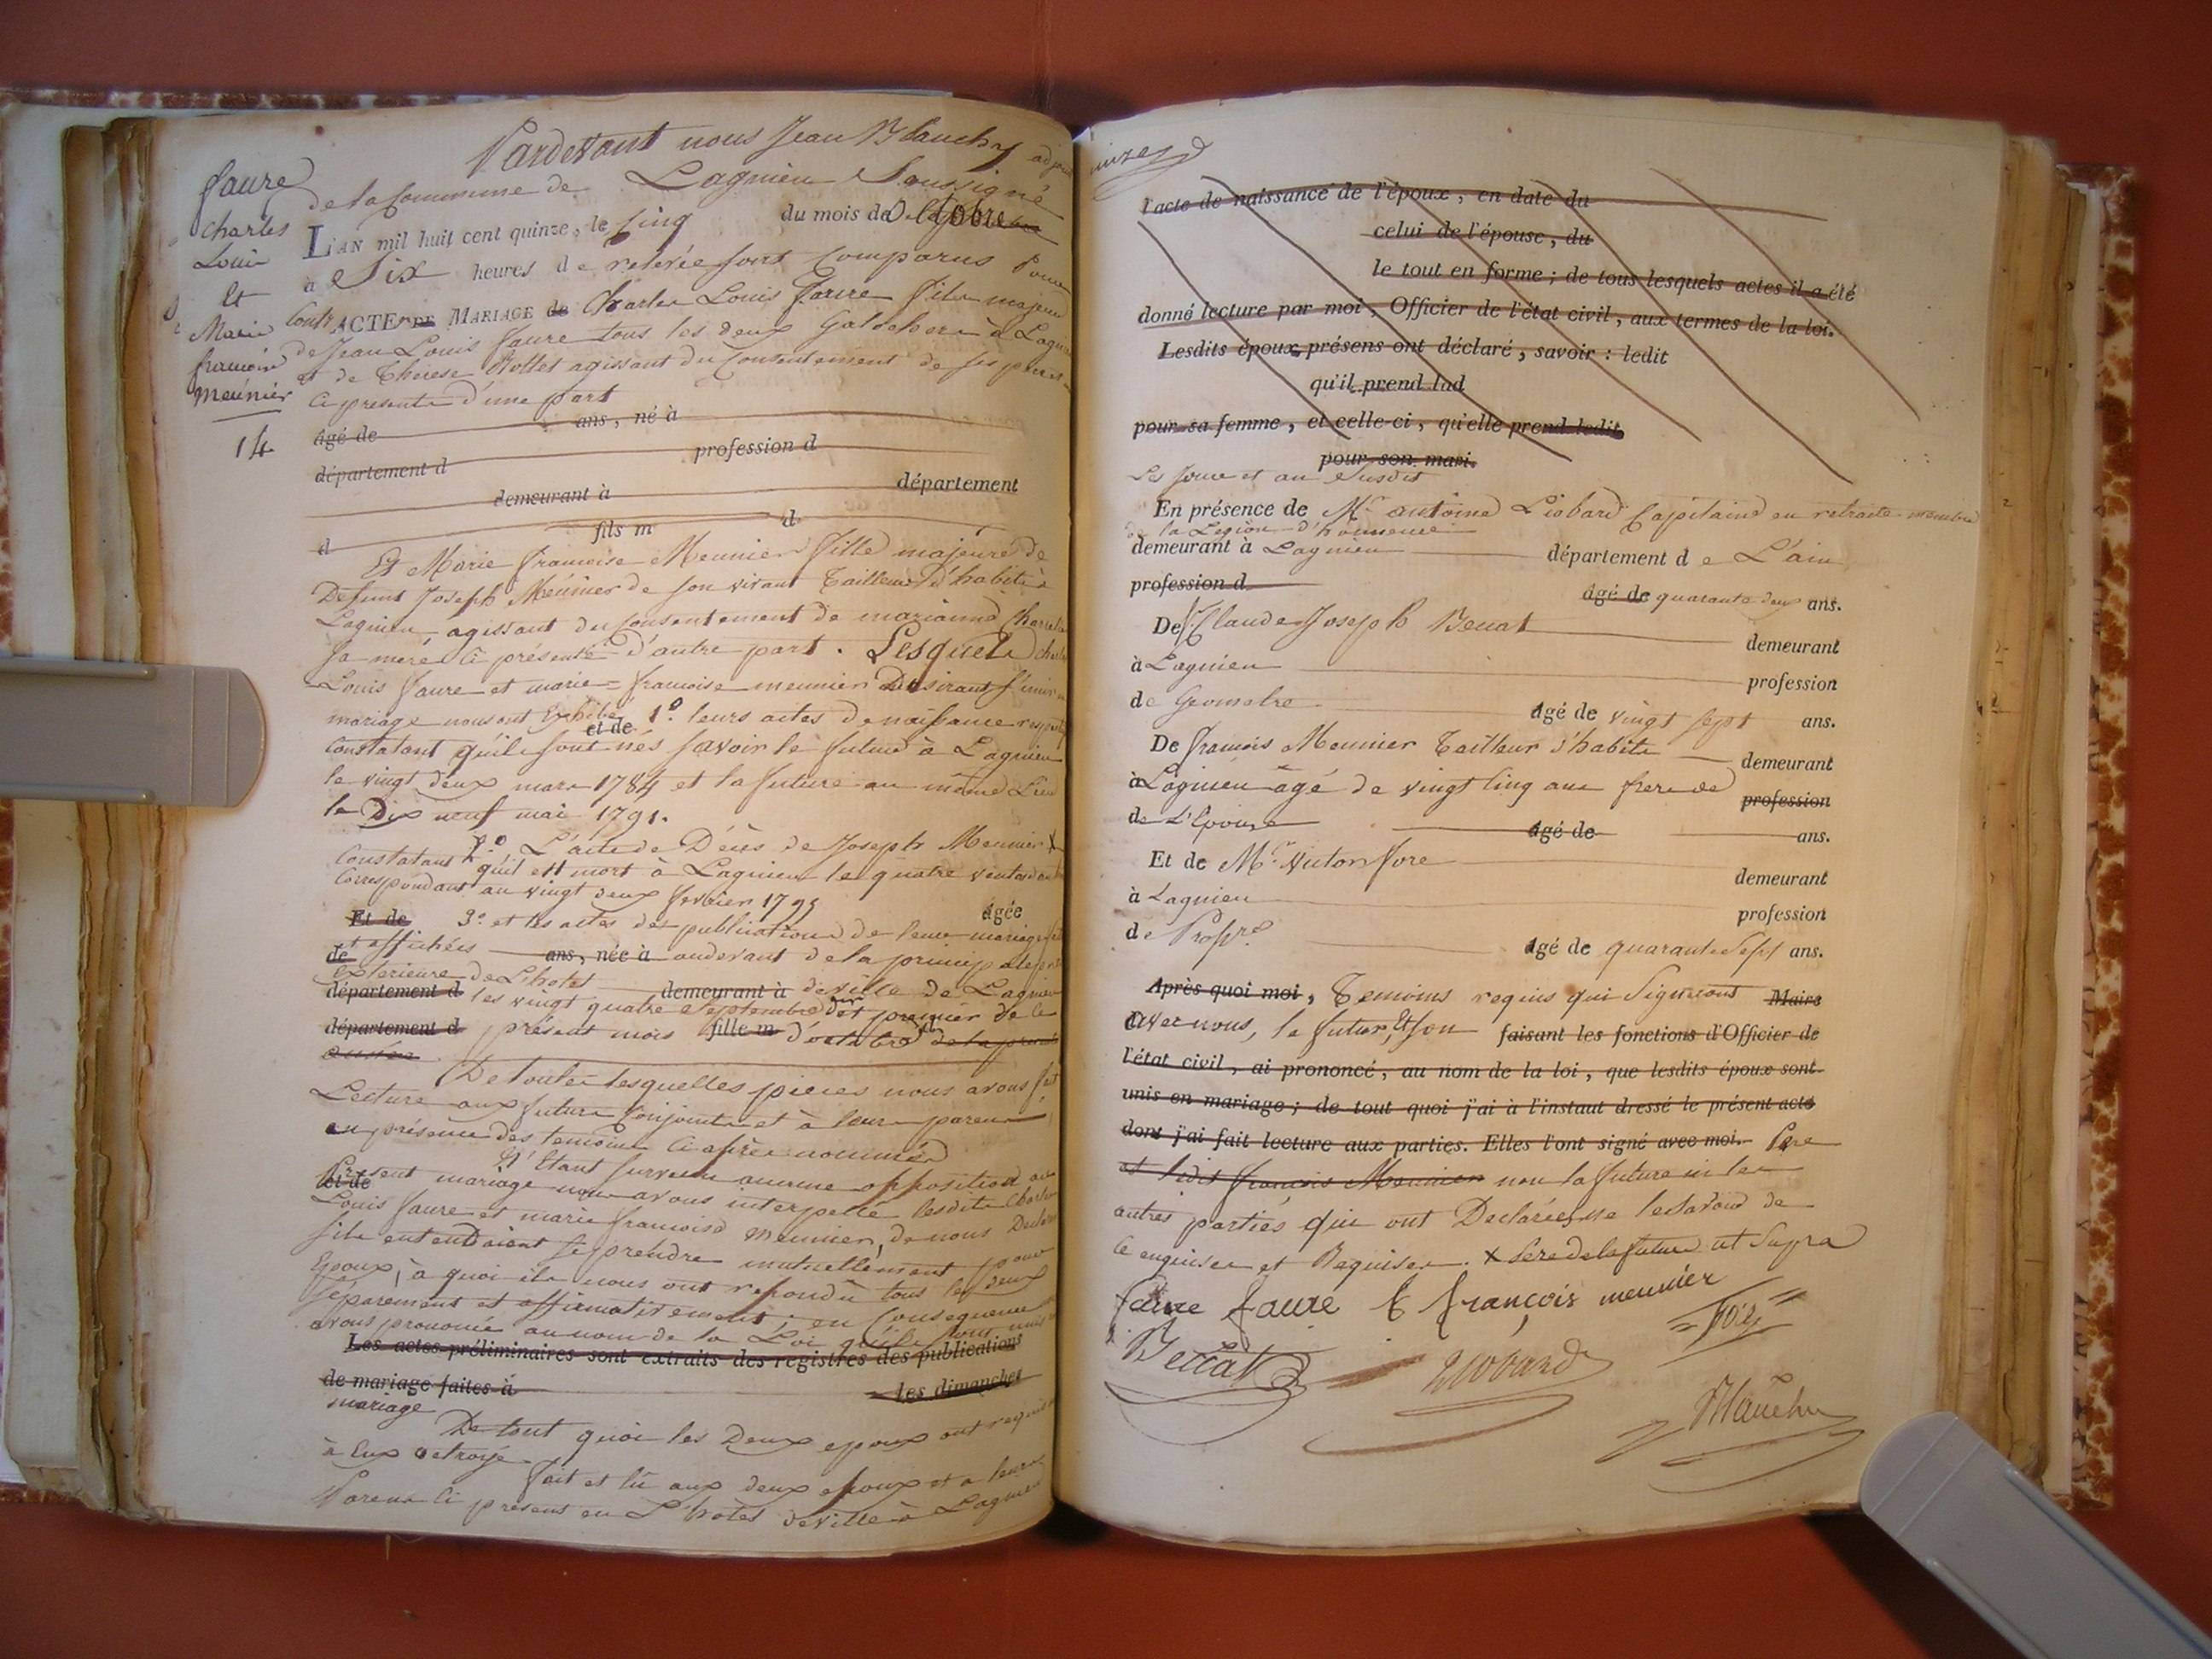 Pardevant nous Jean Blanchy adjoint
de la Commune de Lagnieu Soussigné
faure
charles
Louis
Et
Marie
francoise
meunier
14
L'AN mil huit cent quinze, le Cinq du mois d'Octobre
à Six heures de relevée sont Comparus Pour
Contr ACTER DE MARIAGE de Charles Louis faure fils majeur
de Jean Louis faure tous les deux Galochers à Lagnieu
et de Therese agissant du Consentement de ses pere
Ci presents d'une part
âgé de ans, né à
département d profession d
demeurant à département
d fils m d
Et Marie francoise Meunier fille majeure de
Defunt Joseph Meunier de son vivant Tailleur d'habits à
Lagnieu agissant du Consentement de marianne
sa mere Ci présente d'autre part. Lesquels
Louis faure et marie=francoise meunier Desirant s'unir en
mariage nous ont Exhibé 1.° leurs actes de naissance
et de
Constatant qu'ils sont nés savoir le futur à Lagnieu
le vingt deux mars 1784 et la future au même Lieu
le Dix neuf mai 1791.
2.° L'acte de Décès de Joseph Meunier X
Constatant qu'il est mort à Lagnieu le quatre ventose
Correspondant au vingt deux fevrier 1795
Et de 3.° et les actes des publications de leur mariage âgée
et affichées
de ans, née à audevant de la principale
exterieure de L'hotel
département d demeurant à de ville de Lagnieu
les vingt quatre Septembre dernier et premier de ce
département d présent mois fille m d'octobre
De toutes lesquelles pieces nous avons fait
Lecture aux futurs Conjoints et à leurs parens
en présence des temoins Ci après nommés
N'Etant survenu aucune opposition au
Présent mariage nous avons interpellé lesdits Charles
et de
Louis faure et marie francoise meunier, de nous Declarer
s'ils entendoient se prendre mutuellement pour
Epoux, à quoi ils nous ont repondu tous les deux
séparement et affirmativement; en Consequence
avons prononcé au nom de la Loi qu'ils sont unis
Les actes préliminaires sont extraits des registres des publications
de mariage faites à les dimanches
mariage
De tout quoi les Deux epoux ont requis
à Eux octroyé
fait et lû aux deux epoux et a leurs
Parens Ci présens en L'hotel deville à Lagnieu
l'acte de naissance de l'époux, en date du
celui de l'épouse, du
le tout en forme; de tous lesquels actes il a été
donné lecture par moi, Officier de l'état civil, aux termes de la loi.
Lesdits époux présens ont déclaré, savoir : ledit
qu'il prend lad
pour sa femme, et celle-ci, qu'elle prend ledit
pour son mari.
Les Jour et an Susdit
En présence de Mr antoine Liobard Capitaine en retraite membre
de la Legion d'honneur
demeurant à Lagnieu département de L'ain
profession d âgé de quarante deux ans.
De Sr Claude Joseph Beccat demeurant
à Lagnieu profession
de Geometre âgé de vingt sept ans.
De francois Meunier Tailleur d'habits demeurant
à Lagnieu âgé de vingt Cinq ans frere de profession
de L'Epouse âgé de ans.
Et de Mr. Victor demeurant
à Lagnieu profession
de Propre. âgé de quarante Sept ans.
Après quoi moi, Temoins requis qui Signeront Maire
avec nous, le futur, Et son faisant les fonctions d'Officier de
l'état civil, ai prononcé, au nom de la loi, que lesdits époux sont
unis en mariage; de tout quoi j'ai à l'instant dressé le présent acte
dont j'ai fait lecture aux parties. Elles l'ont signé avec moi. Pere
et ledit francois Meunier non la future ni les
autres parties qui ont Declarées ne le Savoir de
Ce enquises et Requises. X Pere de la future ut Supra
faure faure françois meunier
Beccat Liobard
Blanchy